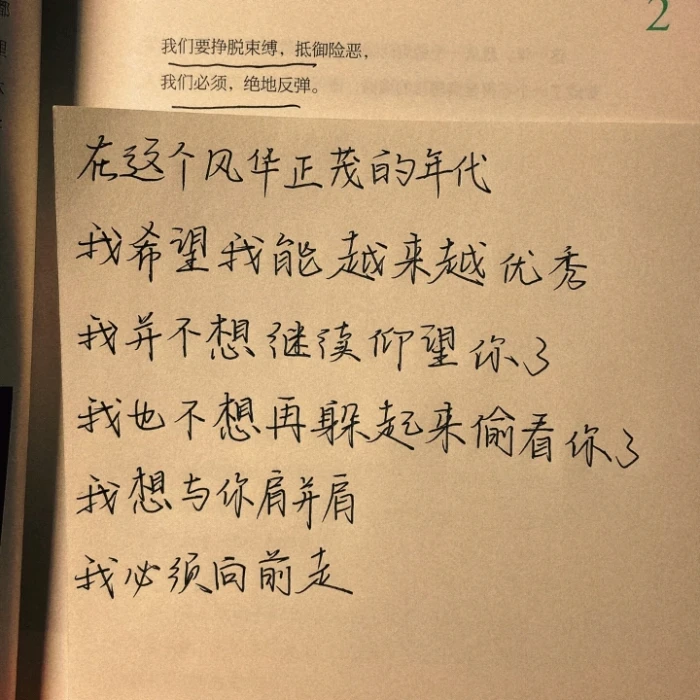 2
我们要挣脱束缚，抵御险恶，
我们必须，绝地反弹。
在这个风华正茂的年代
我希望我能越来越优秀
我并不想继续仰望你了
我也不想再躲起来偷看你了
我想与你肩并肩
我必须向前走